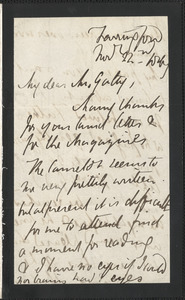 Farringford
Nov 22nd 1869
My dear Mr. Gatty,
Many thanks
for your kind letter &
for the Magazines
The Camelot seems to
me very prettily written
but at present it is difficult
for me to attend find
a moment for reading
& I have no eyes if I could
nor brains nor eyes